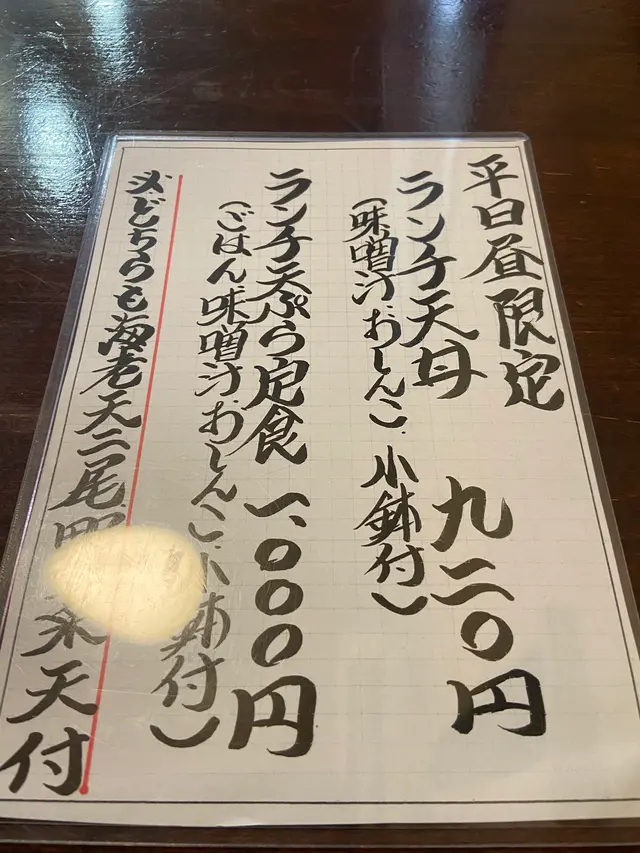 平日昼限定
ランチ天丼 九二〇円
(味噌汁、おしんこ、小鉢付)
ランチ天ぷら定食 一、〇〇〇円
(ごはん、味噌汁、おしんこ、小鉢付)
※どちらも海老天二尾野菜天付